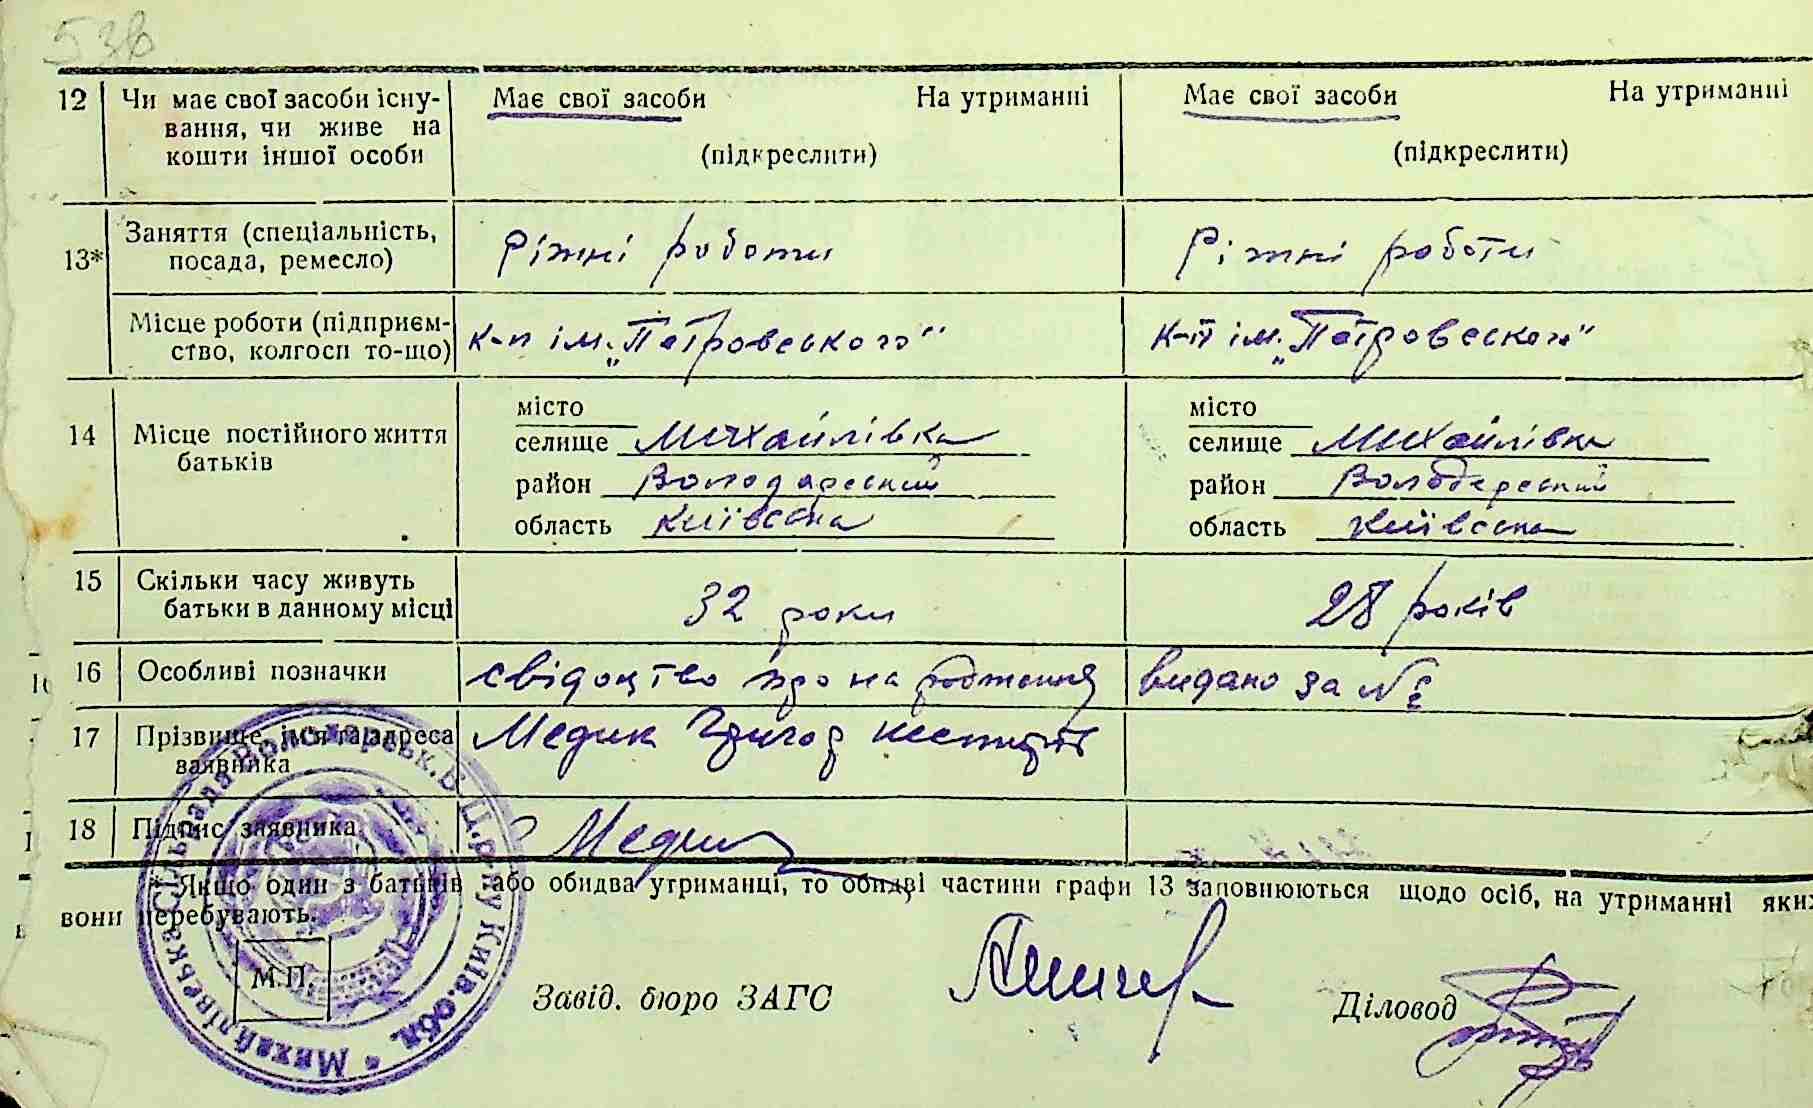 53в
12 Чи має свої засоби існу- Має свої засоби На утриманні Має свої засоби На утриманні
вання, чи живе на
кошти іншої особи (підкреслити) (підкреслити)
13* Заняття (спеціальність, Ріжні роботи Ріжні роботи
посада, ремесло)
Місце роботи (підприєм- к-п ім. „Петровського" к-п ім. „Петровського"
ство, колгосп то-що)
місто місто
14 Місце постійного життя селище Михайлівка селище Михайлівка
батьків район Володарський район Володарський
область Київська область Київська
15 Скільки часу живуть 32 роки 28 років
батьки в данному місці
16 Особливі позначки свідоцтво про народження видано за №
17 Прізвище, ім'я та адреса Медик Григор
заявника
18 Підпис заявника Медик
* Якщо один з батьків або обидва утриманці, то обидві частини графи 13 заповнюються щодо осіб, на утриманні яких
вони перебувають.
М.П.
Завід. бюро ЗАГС Діловод
Михайлівська сільрада Володарськ. Б.Ц. р-ну Київ. обл.